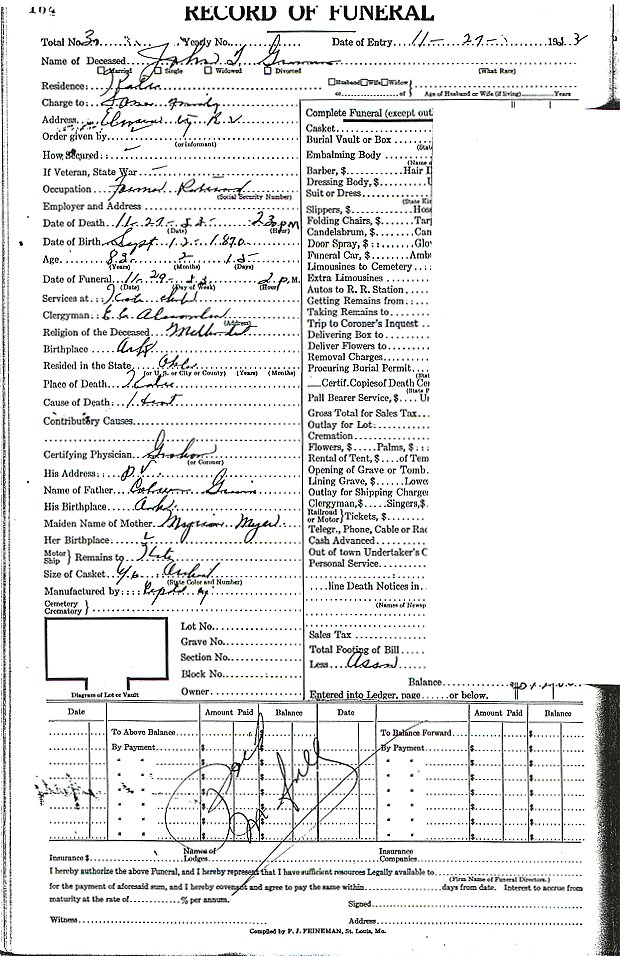 104
RECORD OF FUNERAL
Total No. Yearly No. Date of Entry 11-27- 1953
Name of Deceased John T.
Married Single Widowed Divorced (What Race)
Residence: Husband Wife Widow
or of Age of Husband or Wife (if living) Years
Charge to Family
Address
Order given by
(or informant)
How Secured:
If Veteran, State War
Occupation Farmer Retired
(Social Security Number)
Employer and Address
Date of Death 11-27-53- P.M.
(Date) (Hour)
Date of Birth Sept 12- 1870
Age 83- 2 15-
(Years) (Months) (Days)
Date of Funeral 11-29-53 2 P.M.
(Date) (Day of Week) (Hour)
Services at
Clergyman E. E. Alexander
(Address)
Religion of the Deceased Methodist
Birthplace Ark
Resided in the State Okla
(or U. S. or City or County) (Years) (Months)
Place of Death
Cause of Death Heart
Contributory Causes
Certifying Physician Graham
(or Coroner)
His Address P.V.
Name of Father
His Birthplace Ark
Maiden Name of Mother Myer
Her Birthplace
Motor Ship } Remains to
Size of Casket 6/6
(State Color and Number)
Manufactured by
Cemetery Crematory }
Lot No.
Grave No.
Section No.
Block No.
Owner
Diagram of Lot or Vault
Complete Funeral (except out
Casket
Burial Vault or Box
(Stat
Embalming Body
(Name o
Barber, $ Hair D
Dressing Body, $
Suit or Dress
(State Ki
Slippers, $ Hose
Folding Chairs, $ Tar
Candelabrum, $ Can
Door Spray, $ Glo
Funeral Car, $ Amb
Limousines to Cemetery
Extra Limousines
Autos to R. R. Station
Getting Remains from
Taking Remains to
Trip to Coroner's Inquest
Delivering Box to
Deliver Flowers to
Removal Charges
Procuring Burial Permit
(Stat
Certif. Copies of Death Ce
(State P
Pall Bearer Service, $ U
Gross Total for Sales Tax
Outlay for Lot:
Cremation
Flowers, $ Palms, $
Rental of Tent, $ of Tem
Opening of Grave or Tomb
Lining Grave, $ Lowe
Outlay for Shipping Charge
Clergyman, $ Singers, $
Railroad or Motor } Tickets, $
Telegr., Phone, Cable or Rad
Cash Advanced
Out of town Undertaker's C
Personal Service
line Death Notices in
(Names of Newsp
Sales Tax
Total Footing of Bill
Less Assn
Balance
Entered into Ledger, page or below.
Date Amount Paid Balance Date Amount Paid Balance
To Above Balance $ To Balance Forward
By Payment $ By Payment $
" " $ " " $
" " $ " " $
" " $ " " $
" " $ " " $
" " $ " " $
" " $ " " $
Paid In full
Insurance $ Names of Lodges Insurance Companies
I hereby authorize the above Funeral, and I hereby represent that I have sufficient resources Legally available to
(Firm Name of Funeral Directors.)
for the payment of aforesaid sum, and I hereby covenant and agree to pay the same within days from date. Interest to accrue from
maturity at the rate of % per annum. Signed
Witness Address
Compiled by F. J. FEINEMAN, St. Louis, Mo.